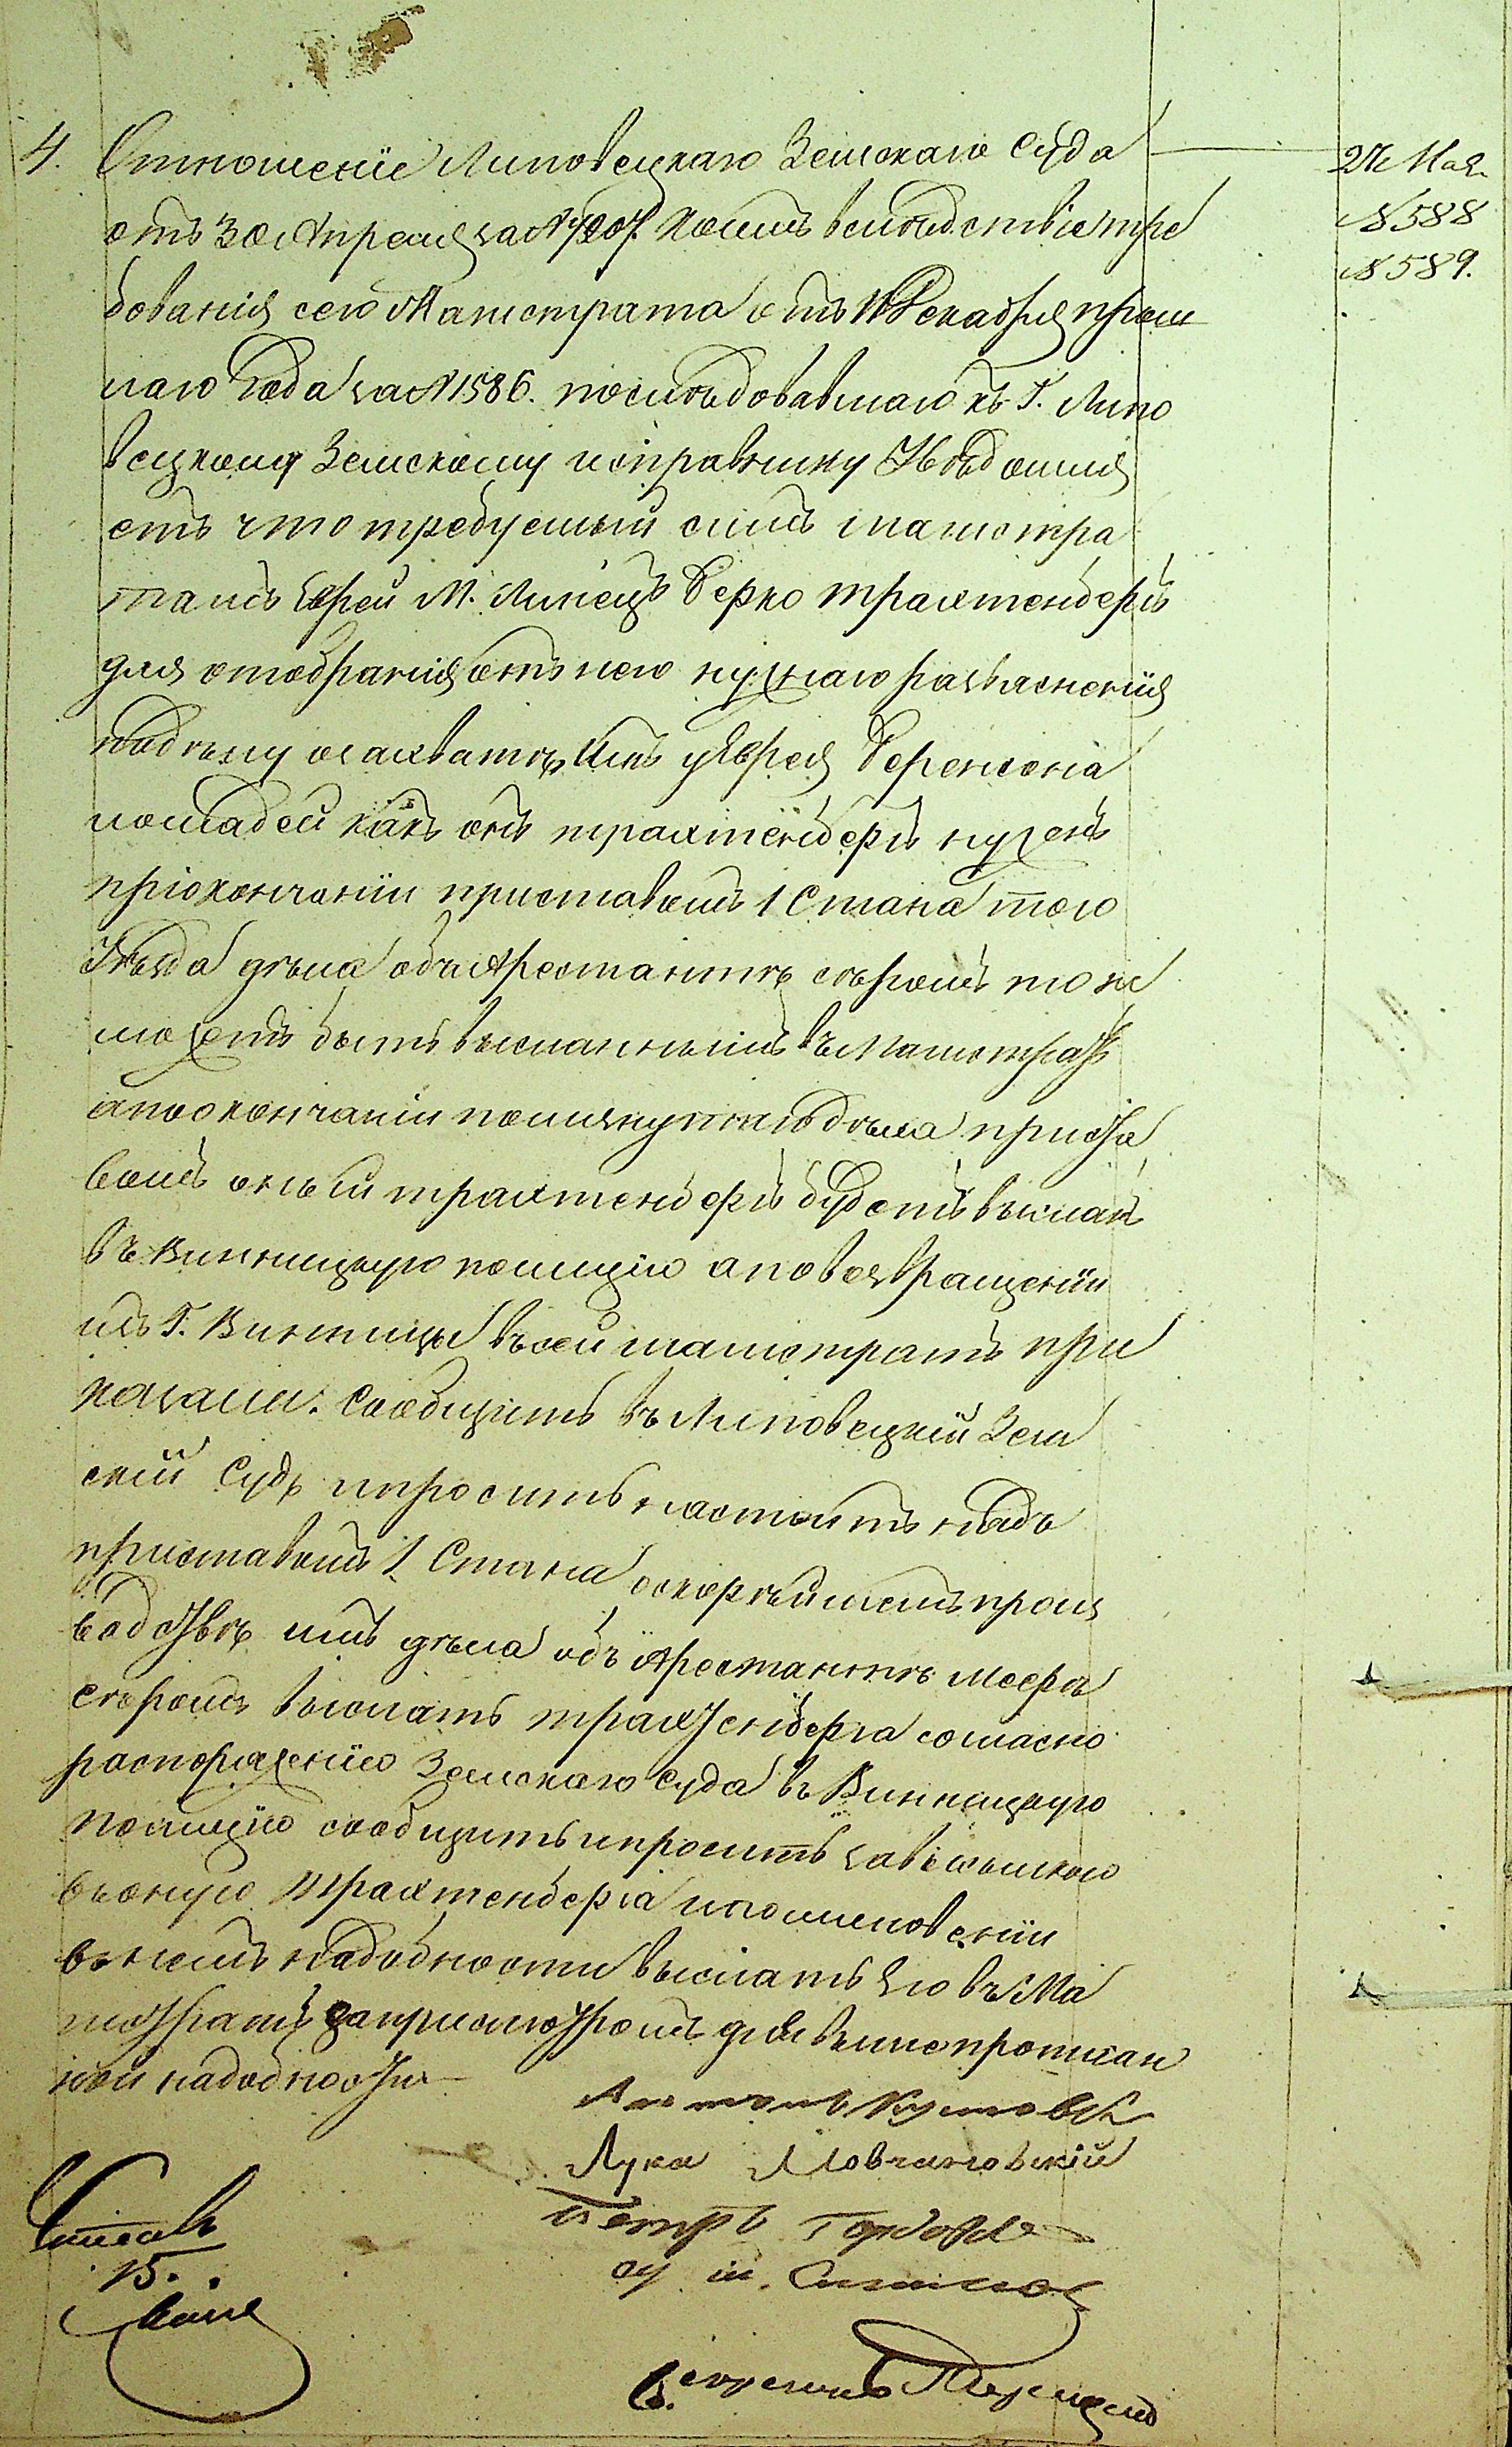 4. Отношеніе Липовецкаго Земскаго Суда
27 Мая
№ 588
№ 589.
отъ 30 Апреля за № коимъ вслѣдствіе тре
бованія сего Магистрата отъ Декабря прош
лаго Года за № 1586. послѣдовавшаго къ Г. Липо
вецкому Земскому исправнику Увѣдомля
етъ что требуемый симъ магистра
томъ Еврей М. Линецъ Берко трахтенберъ
для отобранія отъ него нужнаго разъясненія
по дѣлу о захватѣ имъ у Еврея Беренсона
лошадей какъ онъ трахтенберъ нуженъ
при окончаніи приставомъ 1 Стана того
Уѣзда дѣла объ Арестантѣ сѣромъ то не
можетъ быть высланнымъ въ Магистратъ
а по окончаніи помянутаго дѣла приста
вомъ оный трахтенберъ будетъ высланъ
въ Винницкую полицію а по возвращеніи
изъ Г. Винницы въ сей магистратъ при
казали. Сообщить въ Липовецкій Зем
скій Судъ и просить настоить надъ
приставомъ 1 Стана о скорѣйшемъ произ
водствѣ имъ дѣла объ Арестантѣ
сѣромъ выслать трахтенберга согласно
распоряженію Земскаго Суда въ Винницкую
полицію сообщить и просить за высылкою
въ оную трахтенберга и по миновеніи
въ немъ надобности выслать Его въ Ма
гистратъ за присмотромъ для вышепрописан
ной надобности
Лука Мовчановскій
Петръ
Читалъ
15.